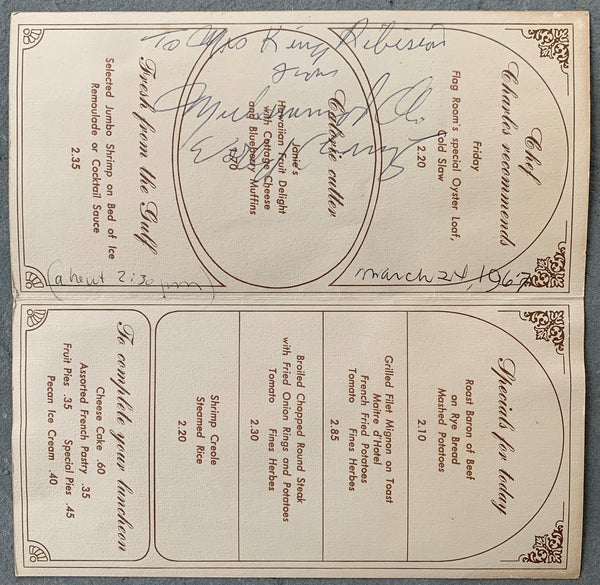 Chef
Charles recommends
Friday
Flag Room's special Oyster Loaf,
Cold Slaw
2.20
Calorie cutter
Janie's
Hawaiian Fruit Delight
with Cottage Cheese
and Blueberry Muffins
Fresh from the Gulf
Selected Jumbo Shrimp on Bed of Ice
Remoulade or Cocktail Sauce
2.35
To Mrs King
from
Muhammad Ali
March 24, 1967
(about 2:30 pm)
Specials for today
Roast Baron of Beef
on Rye Bread
Mashed Potatoes
2.10
Grilled Filet Mignon on Toast
Maitre d'Hotel
French Fried Potatoes
Tomato Fines Herbes
2.85
Broiled Chopped Round Steak
with Fried Onion Rings and Potatoes
Tomato Fines Herbes
2.30
Shrimp Creole
Steamed Rice
2.20
To complete your luncheon
Cheese Cake .60
Assorted French Pastry .35
Fruit Pies .35 Special Pies .45
Pecan Ice Cream .40